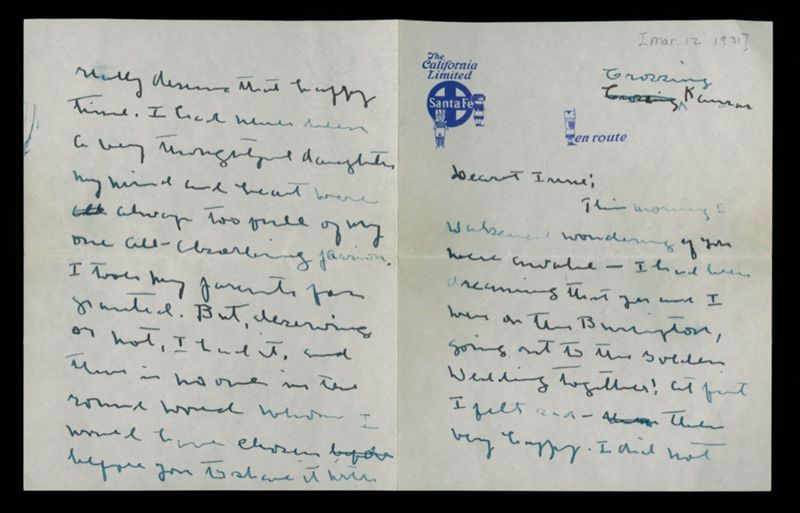 [Mar. 12 1931]
The
California
Limited
Santa Fe
en route
Crossing
Crossing Kansas
Dearest Irene;
This morning I
wakened wondering if you
were awake — I had been
dreaming that you and I
were on the Burlington,
going out to the Golden
Wedding together! At first
I felt sad — then
very happy. I did not
really deserve that happy
time. I had never been
a very thoughtful daughter.
My mind and heart were
all always too full of my
one all-absorbing passion.
I took my parents for
granted. But, deserving
or not, I had it, and
there is no one in the
round world whom I
would have chosen before
before you to share it with